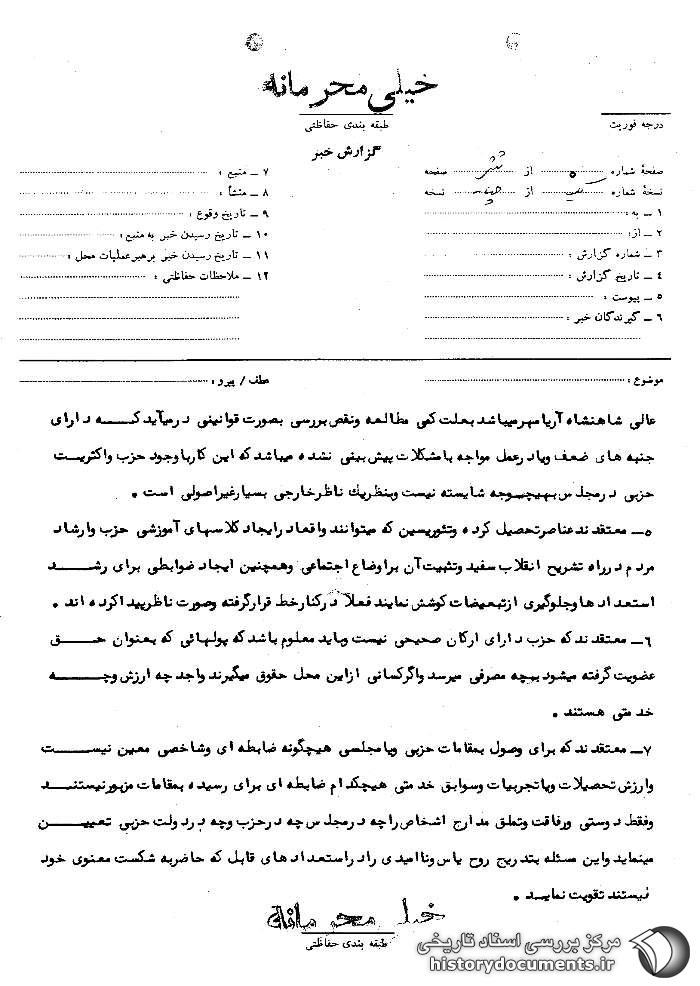 خیلی محرمانه
طبقه بندی حفاظتی
درجه فوریت
گزارش خبر
صفحهٔ شماره ۵ از شش صفحه
نسخهٔ شماره از نسخه
۱ ـ به :
۲ ـ از :
۳ ـ شماره گزارش :
۴ ـ تاریخ گزارش :
۵ ـ پیوست :
۶ ـ گیرندگان خبر :
۷ ـ منبع :
۸ ـ منشأ :
۹ ـ تاریخ وقوع :
۱۰ ـ تاریخ رسیدن خبر به منبع :
۱۱ ـ تاریخ رسیدن خبر برهبر عملیات محل :
۱۲ ـ ملاحظات حفاظتی :
موضوع :
عطف / پیرو :
عالی شاهنشاه آریامهر میباشد بعلت کمی مطالعه ونقص بررسی بصورت قوانینی درمیآید که دارای
جنبه های ضعف ویادرعمل مواجه با مشکلات پیش بینی نشده میباشد که این کارباوجود حزب واکثریت
حزبی درمجلس بهیچوجه شایسته نیست وبنظریك ناظرخارجی بسیارغیراصولی است .
۵ـ معتقدند عناصرتحصیل کرده وتئوریسین که میتوانند واقعا درایجاد کلاسهای آموزشی حزب وارشاد
مردم درراه تشریح انقلاب سفید وتثبیت آن براوضاع اجتماعی وهمچنین ایجاد ضوابطی برای رشد
استعدادها وجلوگیری ازتبعیضات کوشش نمایند فعلا درکنارخط قرارگرفته وصورت ناظرپیداکرده اند .
۶ـ معتقدند که حزب دارای ارکان صحیحی نیست وباید معلوم باشد که پولهائی که بعنوان حق
عضویت گرفته میشود بچه مصرفی میرسد واگرکسانی ازاین محل حقوق میگیرند واجد چه ارزش وچه
خدمتی هستند .
۷ـ معتقدند که برای وصول بمقامات حزبی ویامجلسی هیچگونه ضابطه ای وشاخصی معین نیست
وارزش تحصیلات ویاتجربیات وسوابق خدمتی هیچکدام ضابطه ای برای رسیده بمقامات مزبورنیستند
وفقط دوستی ورفاقت وتملق مدارج اشخاص راچه درمجلس چه درحزب وچه دردولت حزبی تعیین
مینماید واین مسئله بتدریج روح یاس وناامیدی رادراستعدادهای قابل که حاضربه شکست معنوی خود
نیستند تقویت نماید .
خیلی محرمانه
طبقه بندی حفاظتی
مرکز بررسی اسناد تاریخی
historydocuments.ir